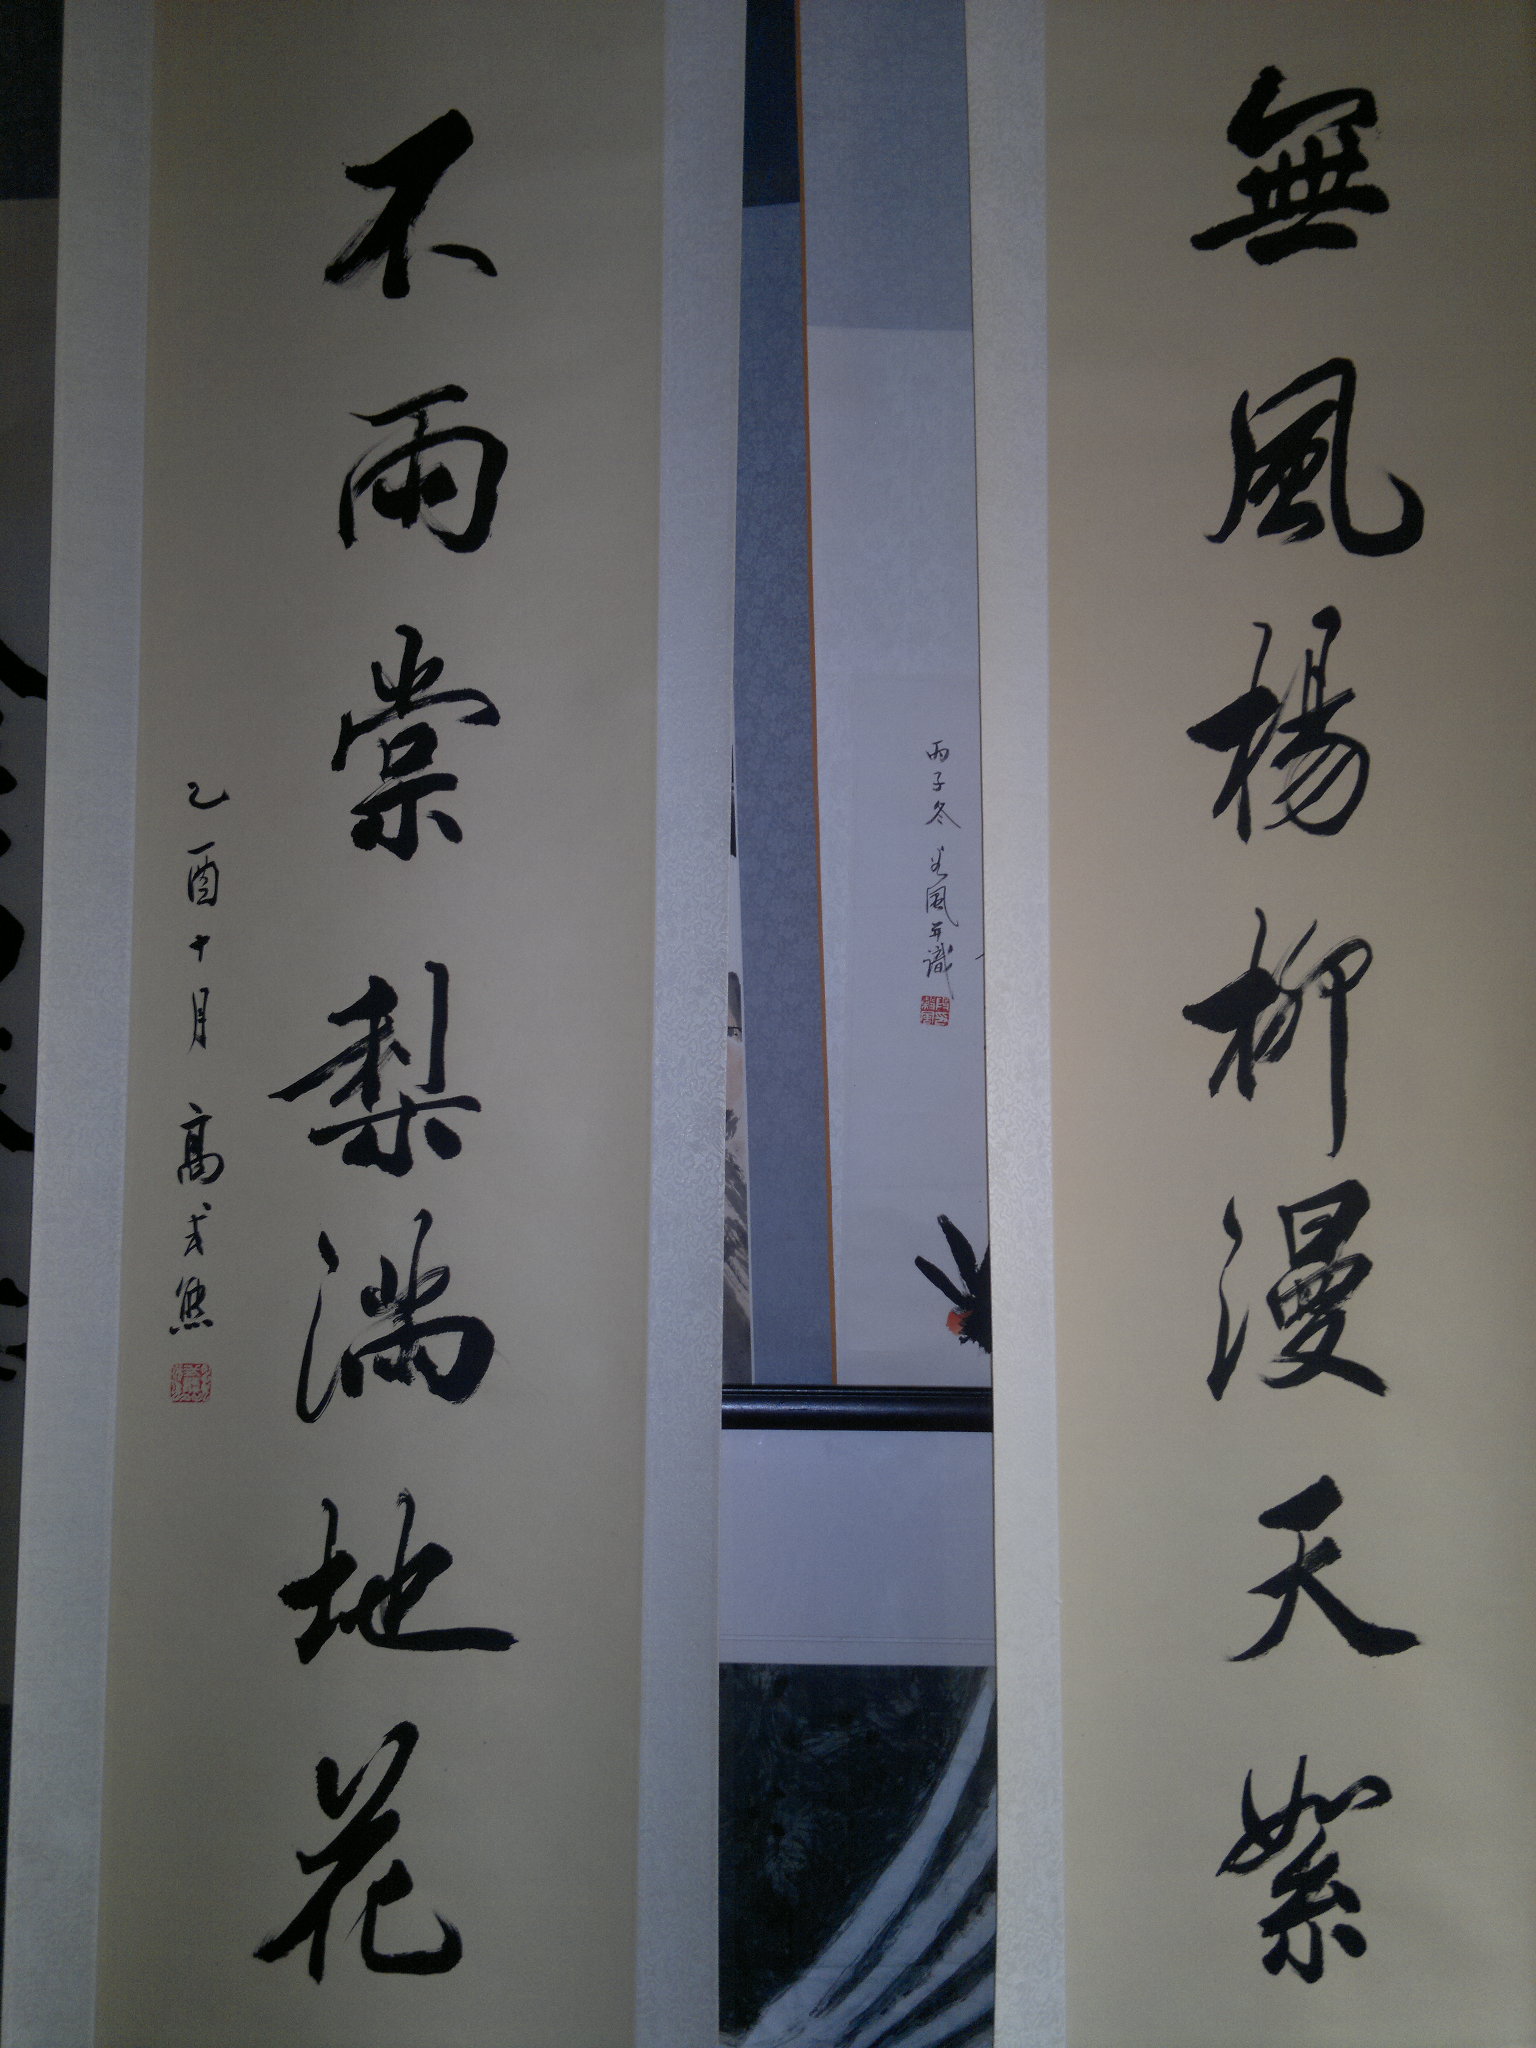 無風楊柳漫天絮
不雨棠梨滿地花
乙酉十月 高式熊
丙子冬